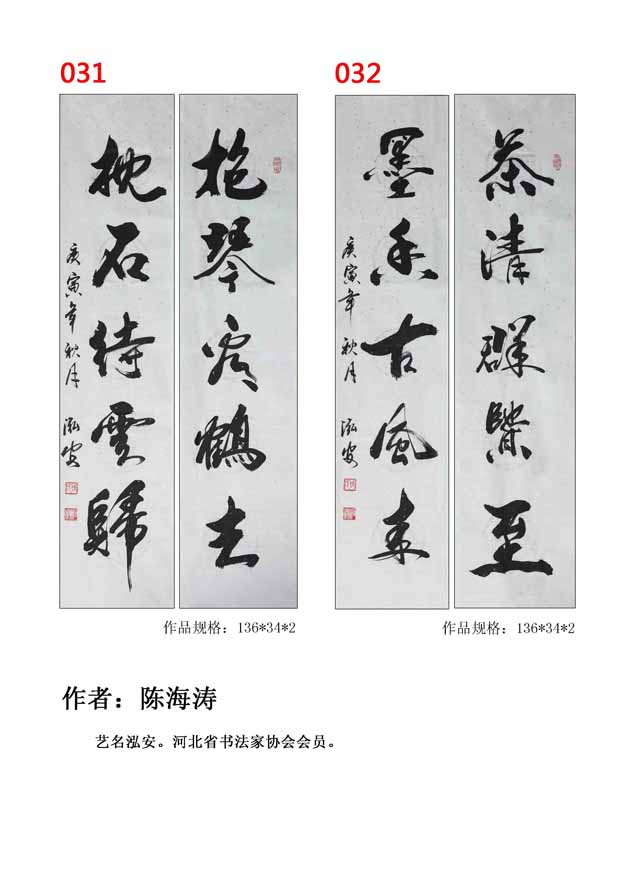 031
抱琴看鶴去
枕石待雲歸
庚寅年秋月 泓安
作品规格：136*34*2
032
茶清群賢至
墨香古風来
庚寅年秋月 泓安
作品规格：136*34*2
作者：陈海涛
艺名泓安。河北省书法家协会会员。